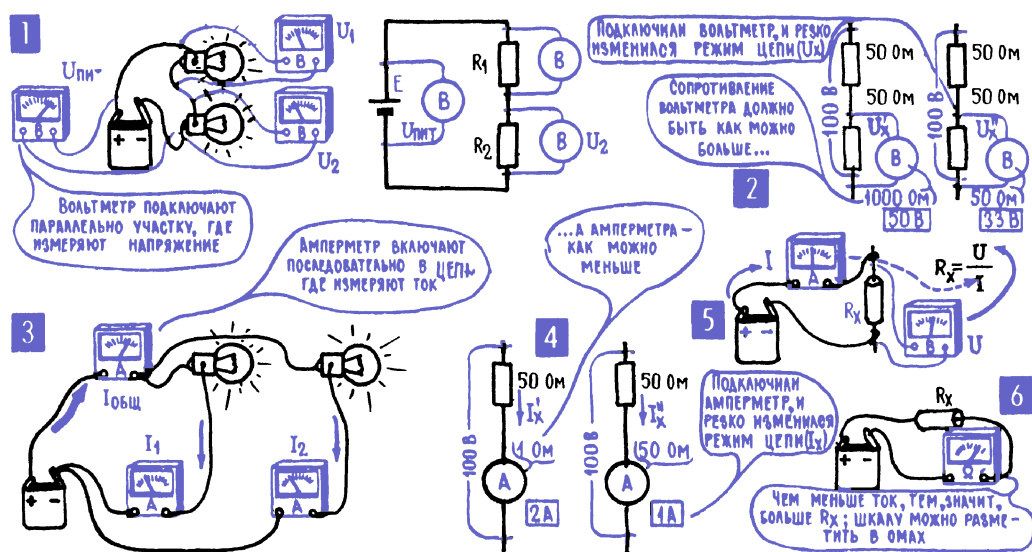 1
Uпит
B
B
U1
B
U2
Вольтметр подключают
параллельно участку, где
измеряют напряжение
E
B
Uпит
R1
B
R2
B
U2
Подключили вольтметр, и резко
изменился режим цепи (Ux)
Сопротивление
вольтметра должно
быть как можно
больше...
2
100 В
50 Ом
50 Ом
U'x
B
1000 Ом
50 В
100 В
50 Ом
50 Ом
U"x
B
50 Ом
33 В
3
Амперметр включают
последовательно в цепи,
где измеряют ток
A
Iобщ
I1
A
I2
A
+ -
...а амперметра –
как можно
меньше
4
100 В
50 Ом
I'x
1 Ом
A
2А
100 В
50 Ом
I"x
50 Ом
A
1А
Подключили
амперметр, и
резко изменился
режим цепи (Ix)
5
I
A
+ -
Rx
B
U
Rx = U/I
6
Rx
+ -
Ω
Чем меньше ток, тем, значит,
больше Rx; шкалу можно разме-
тить в омах